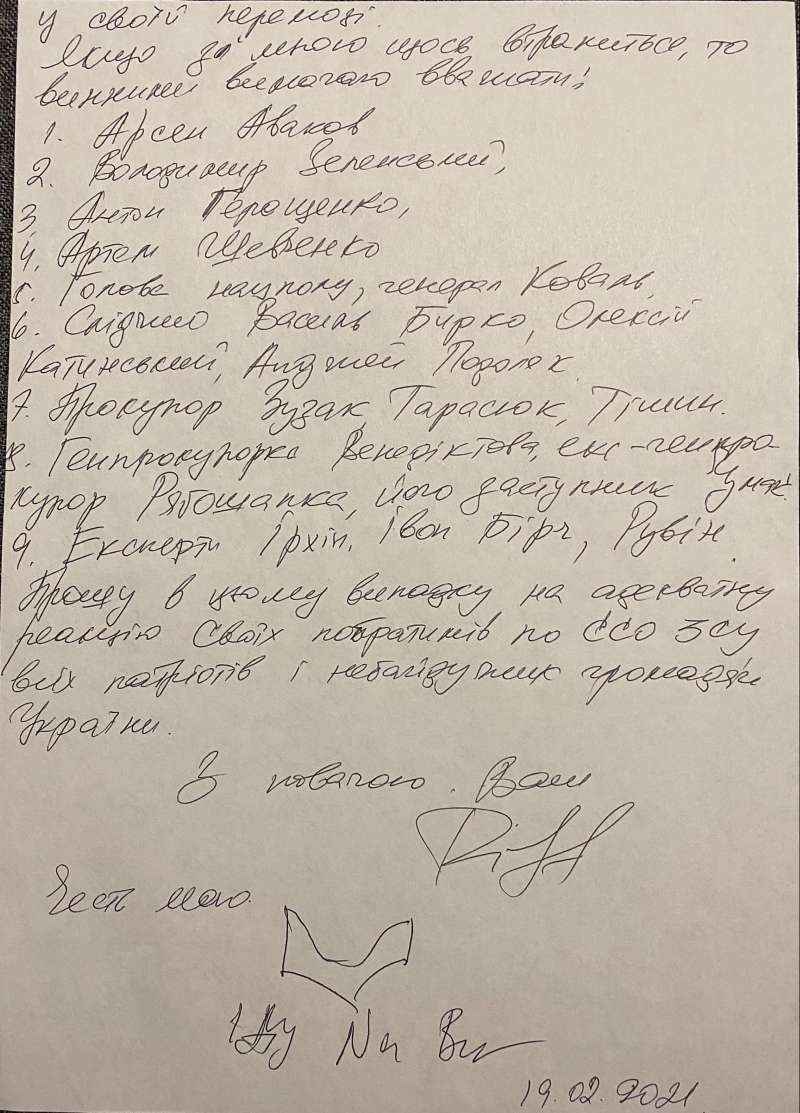 у своїй перемозі.
Якщо зі мною щось втратиться, то
винними вимагаю вважати:
1. Арсен Аваков
2. Володимир Зеленський,
3. Антон Геращенко,
4. Артем Шевченко
5. Голова нацполу, генерал Коваль,
6. Слідчий Василь Бирко, Олексій
Катинський, Анджей Подоляк.
7. Прокурор Зузак, Тарасюк, Тішин.
8. Генпрокурорка Венедіктова, екс-генпро-
курор Рябошапка, його заступник
9. Експерти Ірхін, Івон Бірч, Рувін
Прошу в цьому випадку на адекватну
реакцію своїх побратимів по ССО ЗСУ
всіх патріотів і небайдужих громадян
України.
З повагою. Ваш
Riff
Честь маю.
Йду На Ви
19.02.2021